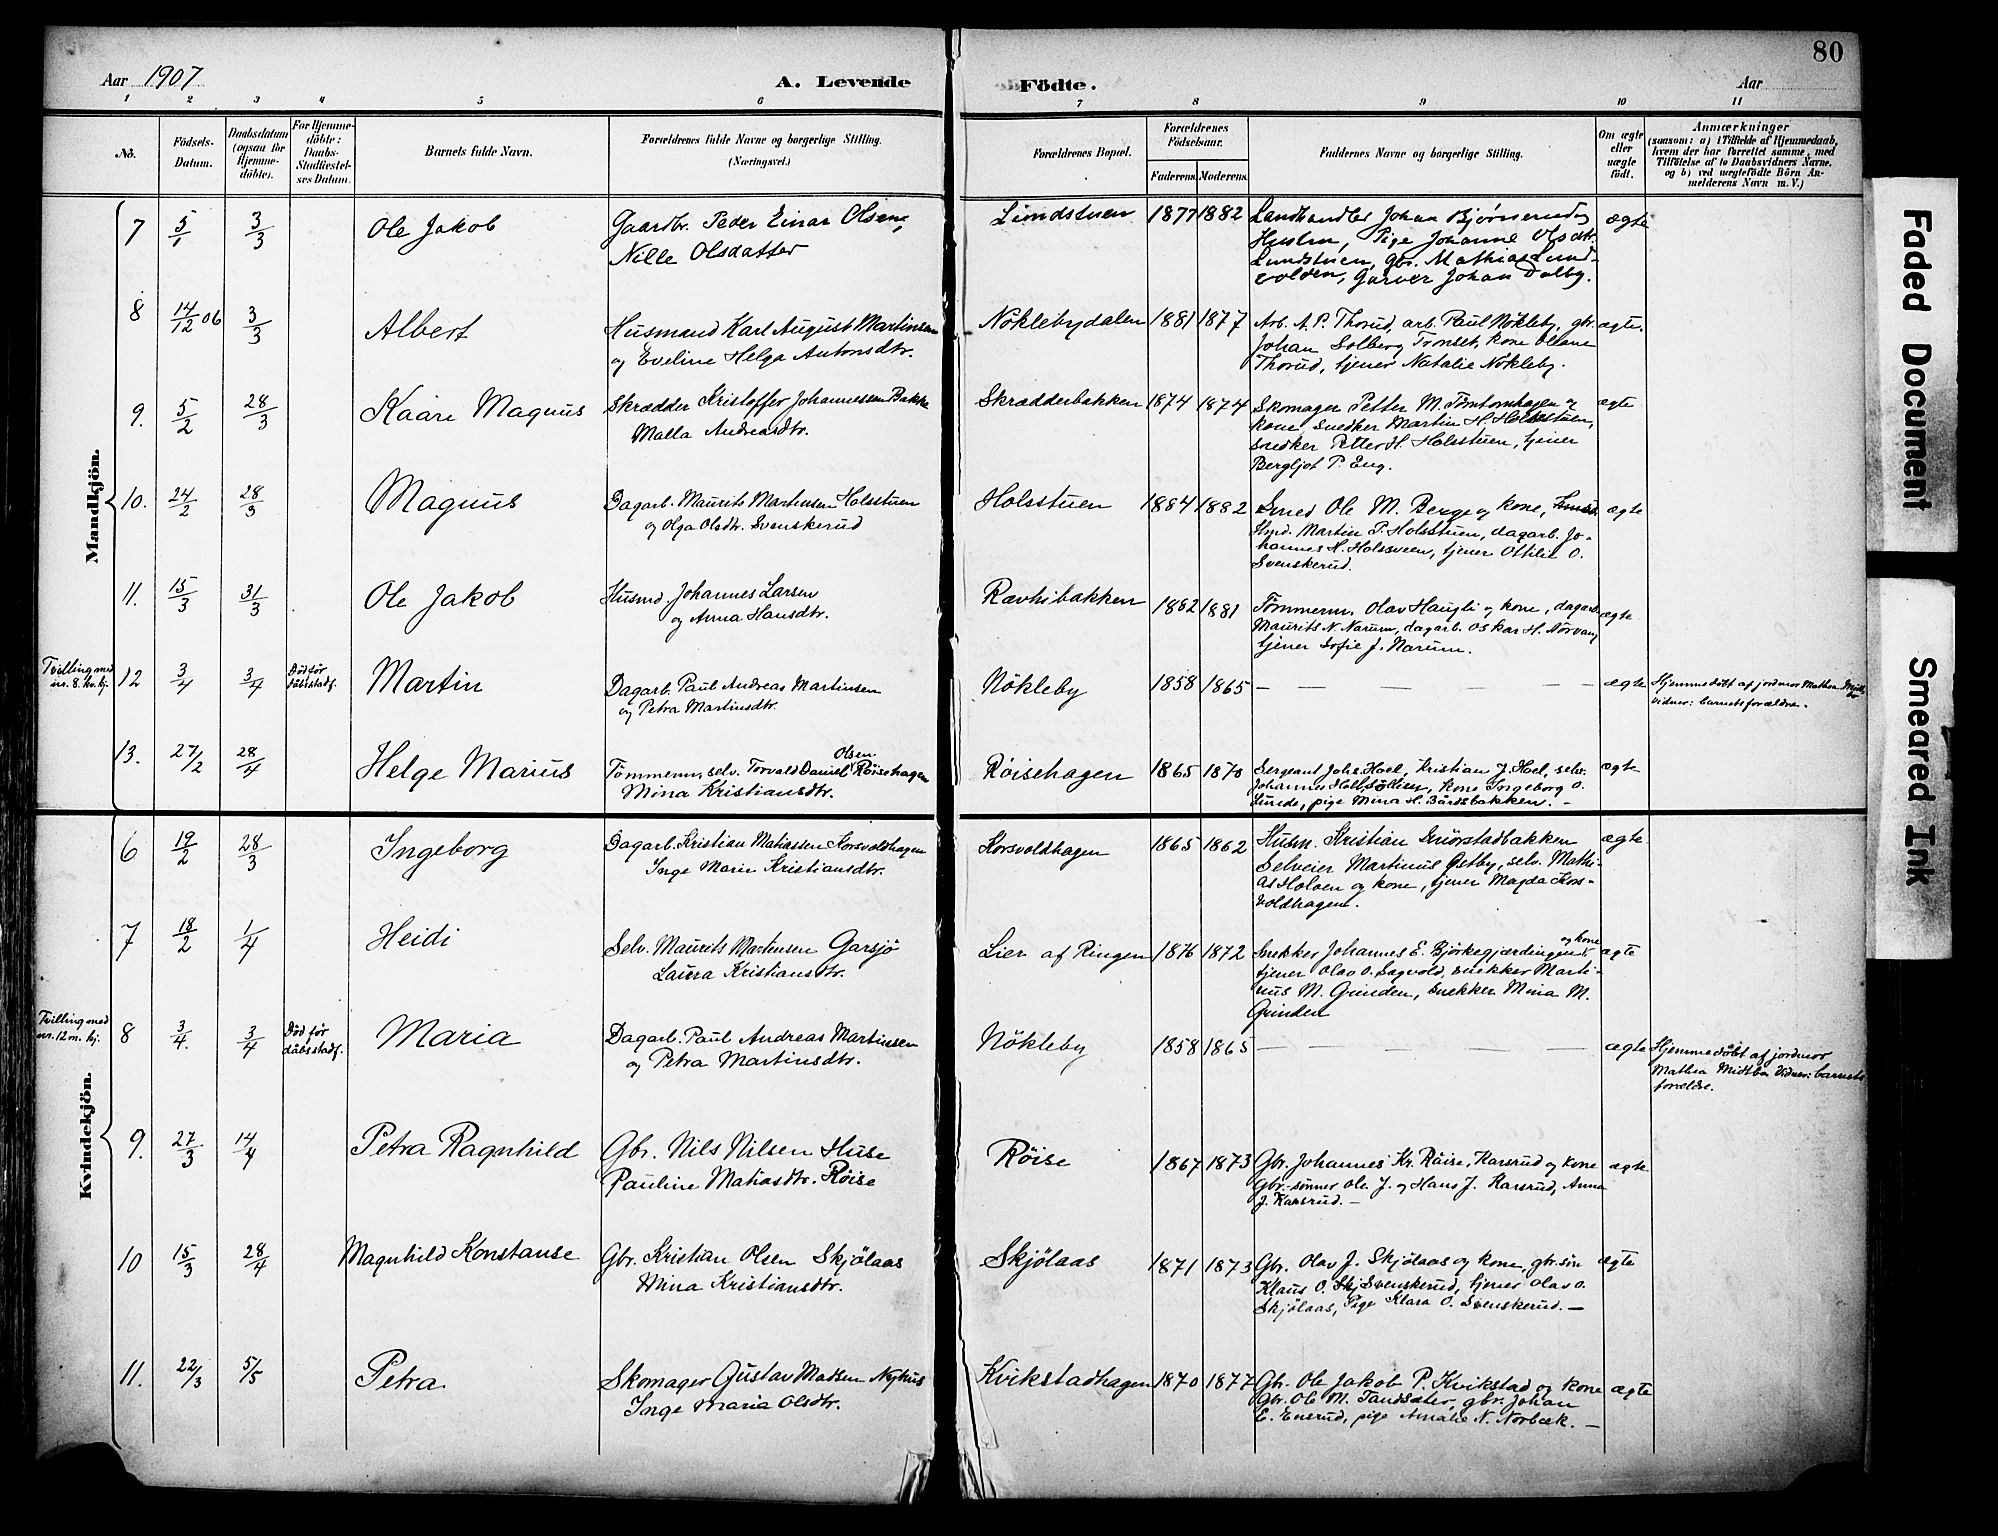 80
Aar 1907
A. Levende
Födte.
Aar
1 2 3 4 5 6 7 8 9 10 11
No.
Födsels-
Datum.
Daabsdatum
(ogsaa for
Hjemme-
döbte).
For Hjemme-
döbte:
Daabs-
Stadfæstel-
ses Datum.
Barnets fulde Navn.
Forældrenes fulde Navne og borgerlige Stilling.
(Næringsvei.)
Forældrenes Bopæl.
Forældrenes
Födselsaar.
Faderens. Moderens.
Faddernes Navne og borgerlige Stilling.
Om ægte
eller
uægte
födt.
Anmærkninger
(saasom: a) i Tilfælde af Hjemmedaab,
hvem der har forrettet samme, med
Tilföielse af to Daabsvidners Navne,
og b) ved uægtefödte Börn An-
melderens Navn m. V.)
Mandkjön.
7 5/1 3/3 Ole Jakob
Gaardbr. Peder Einar Olsen,
Nille Olsdatter
Lundstuen 1877 1882
Landhandler Johan Bjørnerud og
Hustru, Pige Johanne Olsdtr.
Lundstuen, gbr. Mathias Lund-
volden, Garver Johan Dalby.
ægte
8 14/12 06 3/3 Albert
Husmand Karl August Martinsen
og Eveline Helga Antonsdtr.
Nöklebydalen 1881 1877
Arb. A. P. Thorud, arb. Paul Nökleby, gbr.
Johan Solberg Tronset, kone Oliane
Thorud, tjener Natalie Nökleby.
ægte.
9. 5/2 28/3 Kaare Magnus
Skrædder Kristoffer Johannessen Bakke
Malla Andreasdtr.
Skrædderbakken 1874 1874
Skomager Petter M. Törntornhagen og
kone, snedker Martin H. Holsstuen,
snedker Petter H. Holsstuen, tjener
Bergljot P. Eng.
ægte
10. 24/2 28/3 Magnus
Dagarb. Maurits Martinsen Holsstuen
og Olga Olsdtr. Svenskerud
Holsstuen 1884 1882
Smed Ole M. Berge og kone,
Hmd. Martin P. Holsstuen, dagarb. Jo-
hannes H. Holssveen, tjener Ottilie O.
Svenskerud.
ægte
11. 15/3 31/3 Ole Jakob
Husmd. Johannes Larsen
og Anna Hansdtr.
Rævhibakken 1882 1881
Tömmerm. Olav Haugli og kone, dagarb.
Maurits N. Narum, dagarb. Oskar H. Norvang
tjener Sofie J. Narum.
ægte
Tvilling med
nr. 8. kv. kj.
12 3/4 3/4
Död för
dåbsstadf.
Martin
Dagarb. Paul Andreas Martinsen
og Petra Martinsdtr.
Nökleby 1858 1865 — — — — — —
ægte
Hjemmedöbt af jordmor Mathea Midtbö
vidner: barnets forældre.
13. 27/2 28/4 Helge Marius
Tömmerm, selv. Torvald Daniel Olsen Röisehagen
Mina Kristiansdtr.
Röisehagen 1865 1870
Sergeant Johs. Hoel, Kristian J. Hoel, selv.
Johannes Hoel, Sölliser, kone Ingeborg O.
Lunde, pige Mina H. Bårdsbakken. —
ægte
Kvindekjön.
6 19/2 28/3 Ingeborg
Dagarb. Kristian Matiassen Korsvoldhagen
Inge Marie Kristiansdtr.
Korsvoldhagen 1865 1862
Husm. Kristian Snörstadbakken
Selveier Martinus Östby, selv. Mathi-
as Holven og kone, tjener Magda Kors-
voldhagen.
ægte
7 18/2 1/4 Heidi
Selv. Maurits Martinsen Garsjö
Laura Kristiansdtr.
Lier af Ringen 1876 1872
Snekker Johannes E. Björkegjærdingen og kone
tjener Olav O. Sagvold, snekker Marti-
nus M. Grinden, snekker Mina M.
Grinden
ægte
Tvilling med
nr. 12 m. kj.
8 3/4. 3/4
Död för
dåbsstadf.
Maria
Dagarb. Paul Andreas Martinsen
og Petra Martinsdtr.
Nökleby 1858 1865 — — — — — —
ægte
Hjemmedöbt af jordmor
Mathea Midtbö Vidner: barnets
forældre.
9. 27/3 14/4 Petra Ragnhild
Gbr. Nils Nilsen Huse
Pauline Matiasdtr. Röise
Röise 1867 1873
Gbr. Johannes Kr. Röise, Karsrud og kone
Gbr.-sönner Ole J. og Hans J. Karsrud, Anna
J. Karsrud. —
ægte
10 15/3 28/4 Magnhild Konstanse
Gbr. Kristian Olsen Skjölaas
Mina Kristiansdtr.
Skjölaas 1871 1873
Gbr. Olav J. Skjölaas og kone, gbr.sön
Klaus O. Svenskerud, tjener Olav O.
Skjölaas, Pige Klara O. Svenskerud. —
ægte
11. 22/3 5/5 Petra
Skomager Gustav Madsen Nyhus
Inge Maria Olsdtr.
Kvikstadhagen 1870 1877
Gbr. Ole Jakob P. Kvikstad og kone
Gbr. Ole M. Tandsæter, gbr. Johan
E. Enerud, pige Amalie N. Norbæk. —
ægte
Faded Document
Smeared Ink